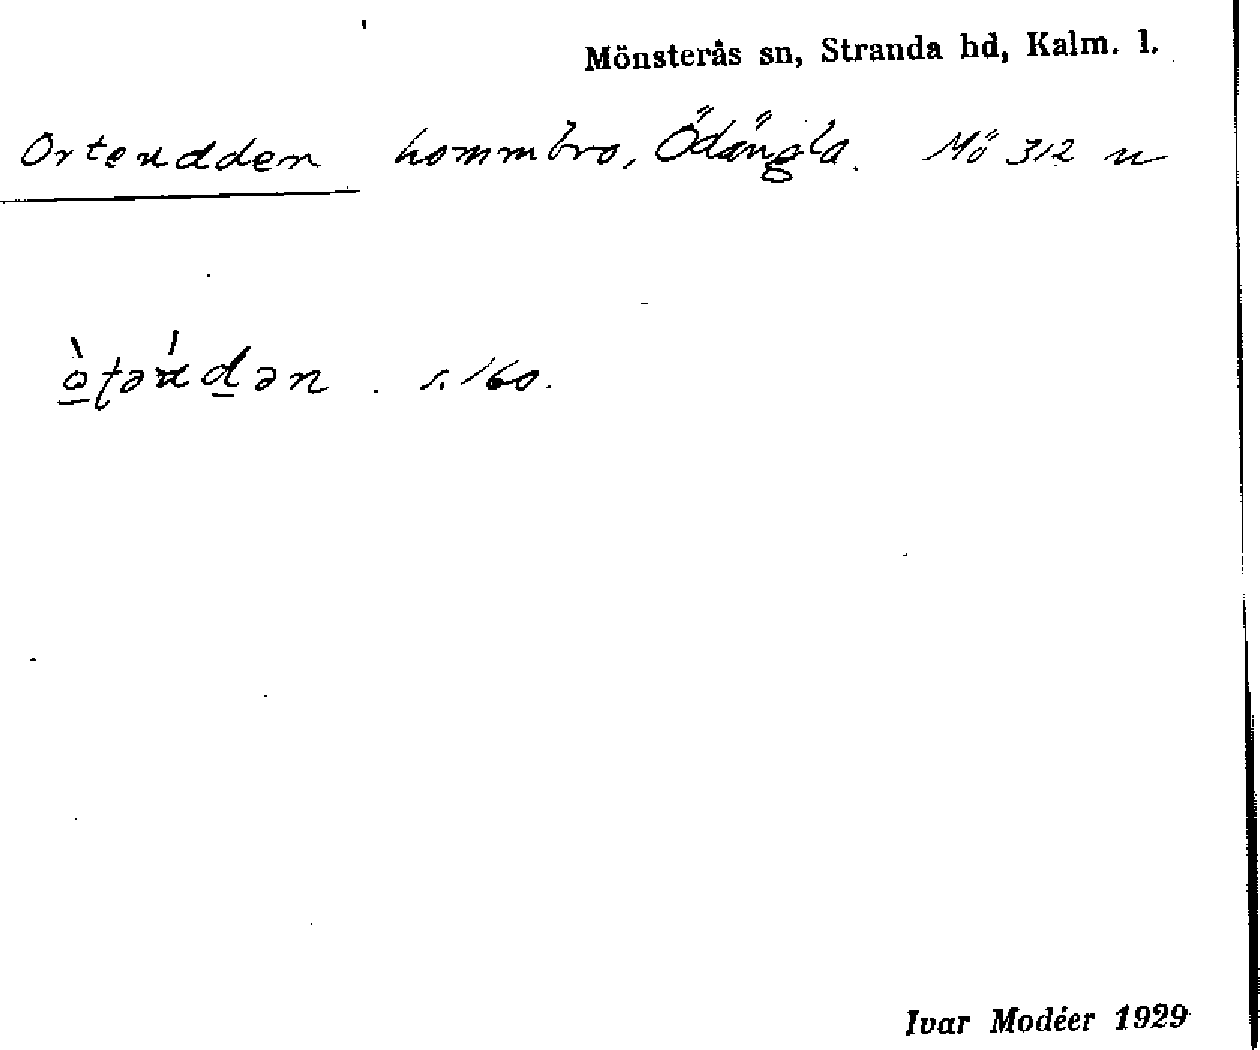 Mönsterås sn, Stranda hd, Kalm. l.
Ortenudden hommbro, Ödängla. Mö 312 u
s. 160.
Ivar Modéer 1929